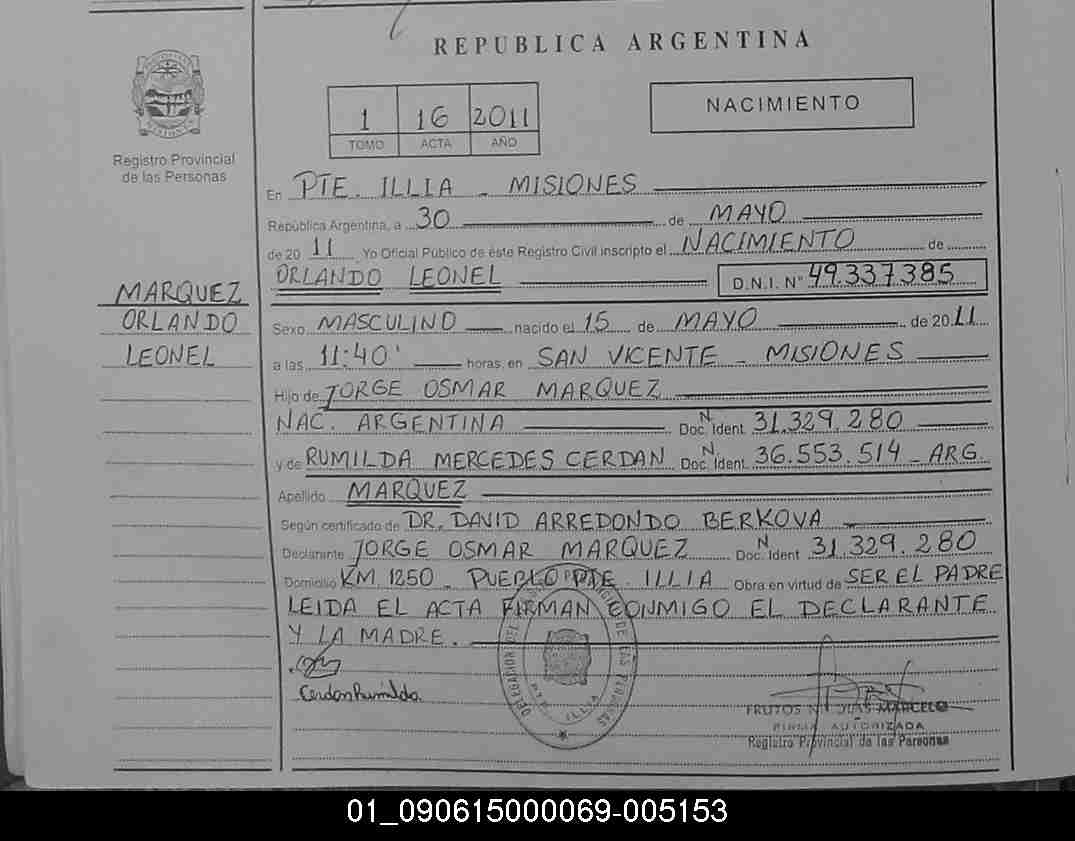 REPUBLICA ARGENTINA
MISIONES
Registro Provincial
de las Personas
1 16 2011
TOMO ACTA AÑO
NACIMIENTO
En PTE. ILLIA - MISIONES
República Argentina, a 30 de MAYO
de 20 11 Yo Oficial Público de este Registro Civil inscripto el NACIMIENTO de
ORLANDO LEONEL D.N.I. Nº 49.337.385
MARQUEZ
ORLANDO
LEONEL
Sexo MASCULINO nacido el 15 de MAYO de 2011
a las 11:40' horas en SAN VICENTE - MISIONES
Hijo de JORGE OSMAR MARQUEZ
NAC. ARGENTINA Doc. N Ident. 31.329.280
y de RUMILDA MERCEDES CERDAN Doc. N Ident. 36.553.514 - ARG.
Apellido MARQUEZ
Según certificado de DR. DAVID ARREDONDO BERKOVA
Declarante JORGE OSMAR MARQUEZ Doc. N Ident 31.329.280
Domicilio KM. 1250 - PUEBLO PTE. ILLIA Obra en virtud de SER EL PADRE
LEIDA EL ACTA FIRMAN CONMIGO EL DECLARANTE
Y LA MADRE.
Cerdan Rumilda
DELEGACION DEL DE LAS PERSONAS
PTE. ILLIA
FRUTOS N DIAS MARCELO
FIRMA AUTORIZADA
Registro Provincial de las Personas
01_090615000069-005153